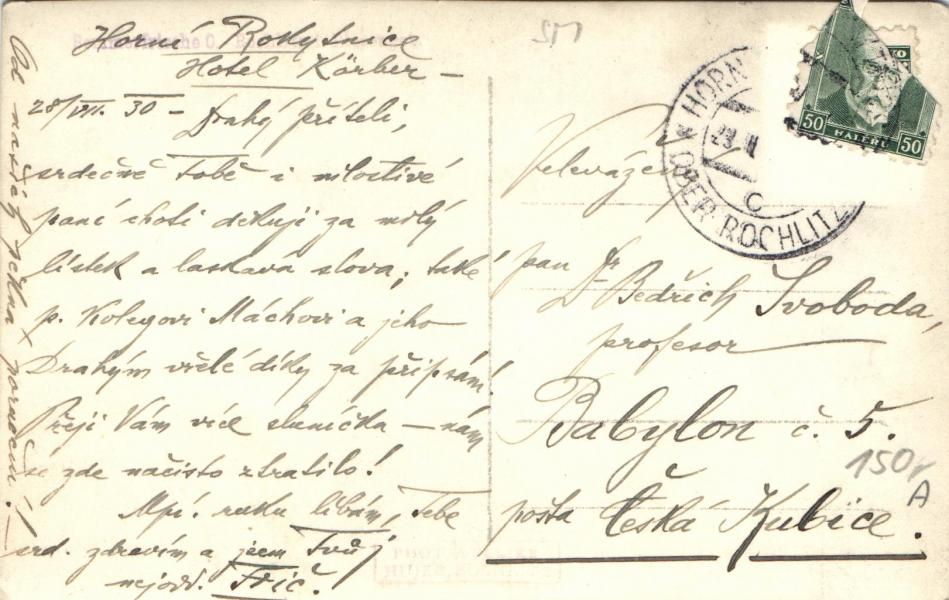 Horní Rokytnice
Hotel Körber –
28/VII. 30 – Drahý příteli,
srdečně Tobě i milostivé
paní choti děkuji za milý
lístek a laskavá slova, také
p. kolegovi Máchovi a jeho
Drahým vřelé díky za připsání.
Přeji Vám více sluníčka – nám
se zde načisto ztratilo!
Mpí. ruku líbám, Tebe
srd. zdravím a jsem Tvůj
Frič.
Od našich pěkná poručení!
HORNÍ
OBER ROCHLITZ
C
50 HALÉŘŮ 50
Velevážený
pan Dr Bedřich Svoboda,
profesor
Babylon č. 5.
pošta Česká Kubice.
150,-
A